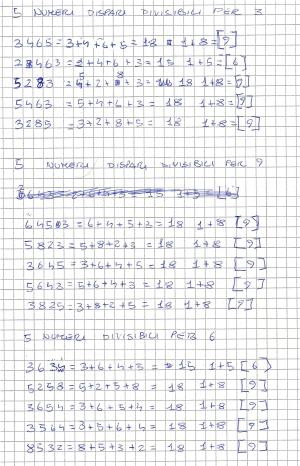 5 NUMERI DISPARI DIVISIBILI PER 3
3465=3+4+6+5=18 1+8=[9]
2463=2+4+6+3=15 1+5=[6]
5283=5+2+8+3=18 1+8=[9]
5463=5+4+6+3=18 1+8=[9]
3285=3+2+8+5=18 1+8=[9]
5 NUMERI DISPARI DIVISIBILI PER 9
6453=6+4+5+3=18 1+8 [9]
5823=5+8+2+3=18 1+8 [9]
3645=3+6+4+5=18 1+8 [9]
5643=5+6+4+3=18 1+8 [9]
3825=3+8+2+5=18 1+8 [9]
5 NUMERI DIVISIBILI PER 6
=3+6+4+5=15 1+5[6]
5258=5+2+5+8=18 1+8 [9]
3654=3+6+5+4=18 1+8 [9]
3564=3+5+6+4=18 1+8 [9]
8532=8+5+3+2=18 1+8 [9]